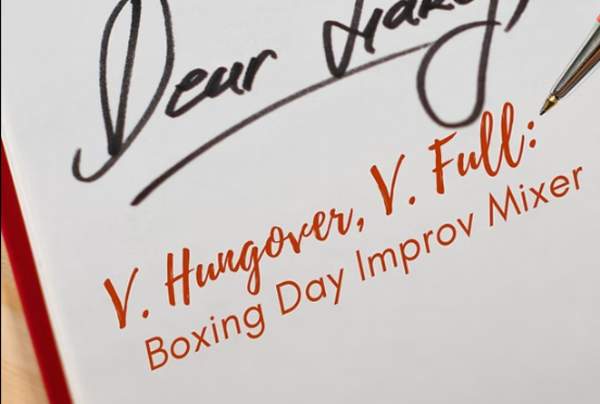 Dear
V. Hungover, V. Full:
Boxing Day Improv Mixer